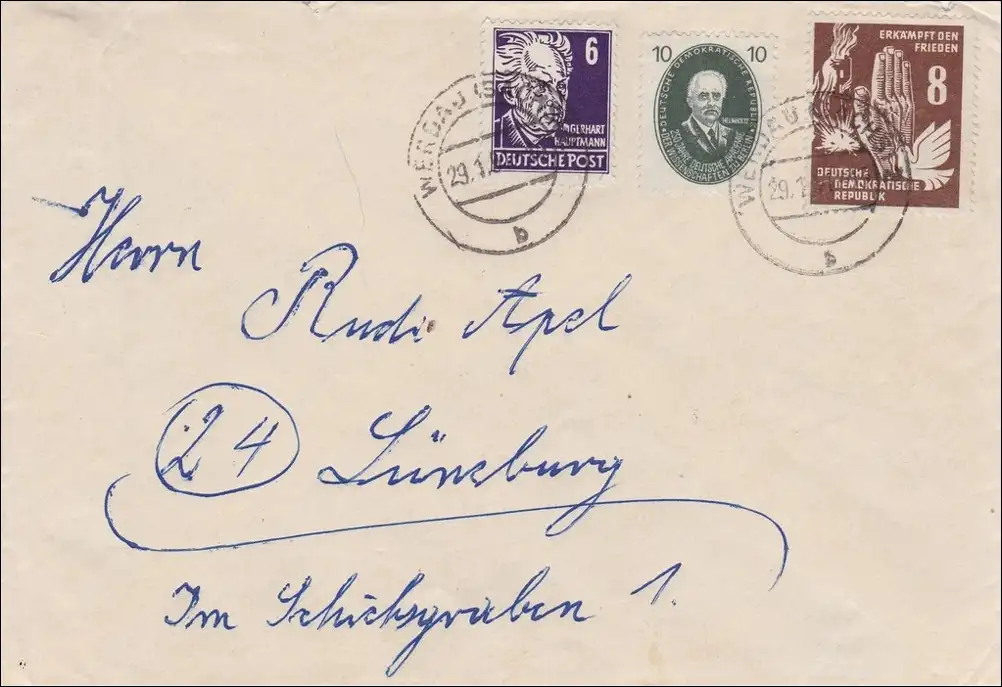 6
GERHART
HAUPTMANN
DEUTSCHE POST
10 10
DEUTSCHE DEMOKRATISCHE REPUBLIK
HELMHOLTZ
250 JAHRE DEUTSCHE AKADEMIE
DER WISSENSCHAFTEN ZU BERLIN
ERKÄMPFT DEN
FRIEDEN
8
DEUTSCHE
DEMOKRATISCHE
REPUBLIK
WERDAU
29.1
b
WERDAU
29.1
b
Herrn
Rudi Apel
24 Lüneburg
Im Schiksgraben 1.